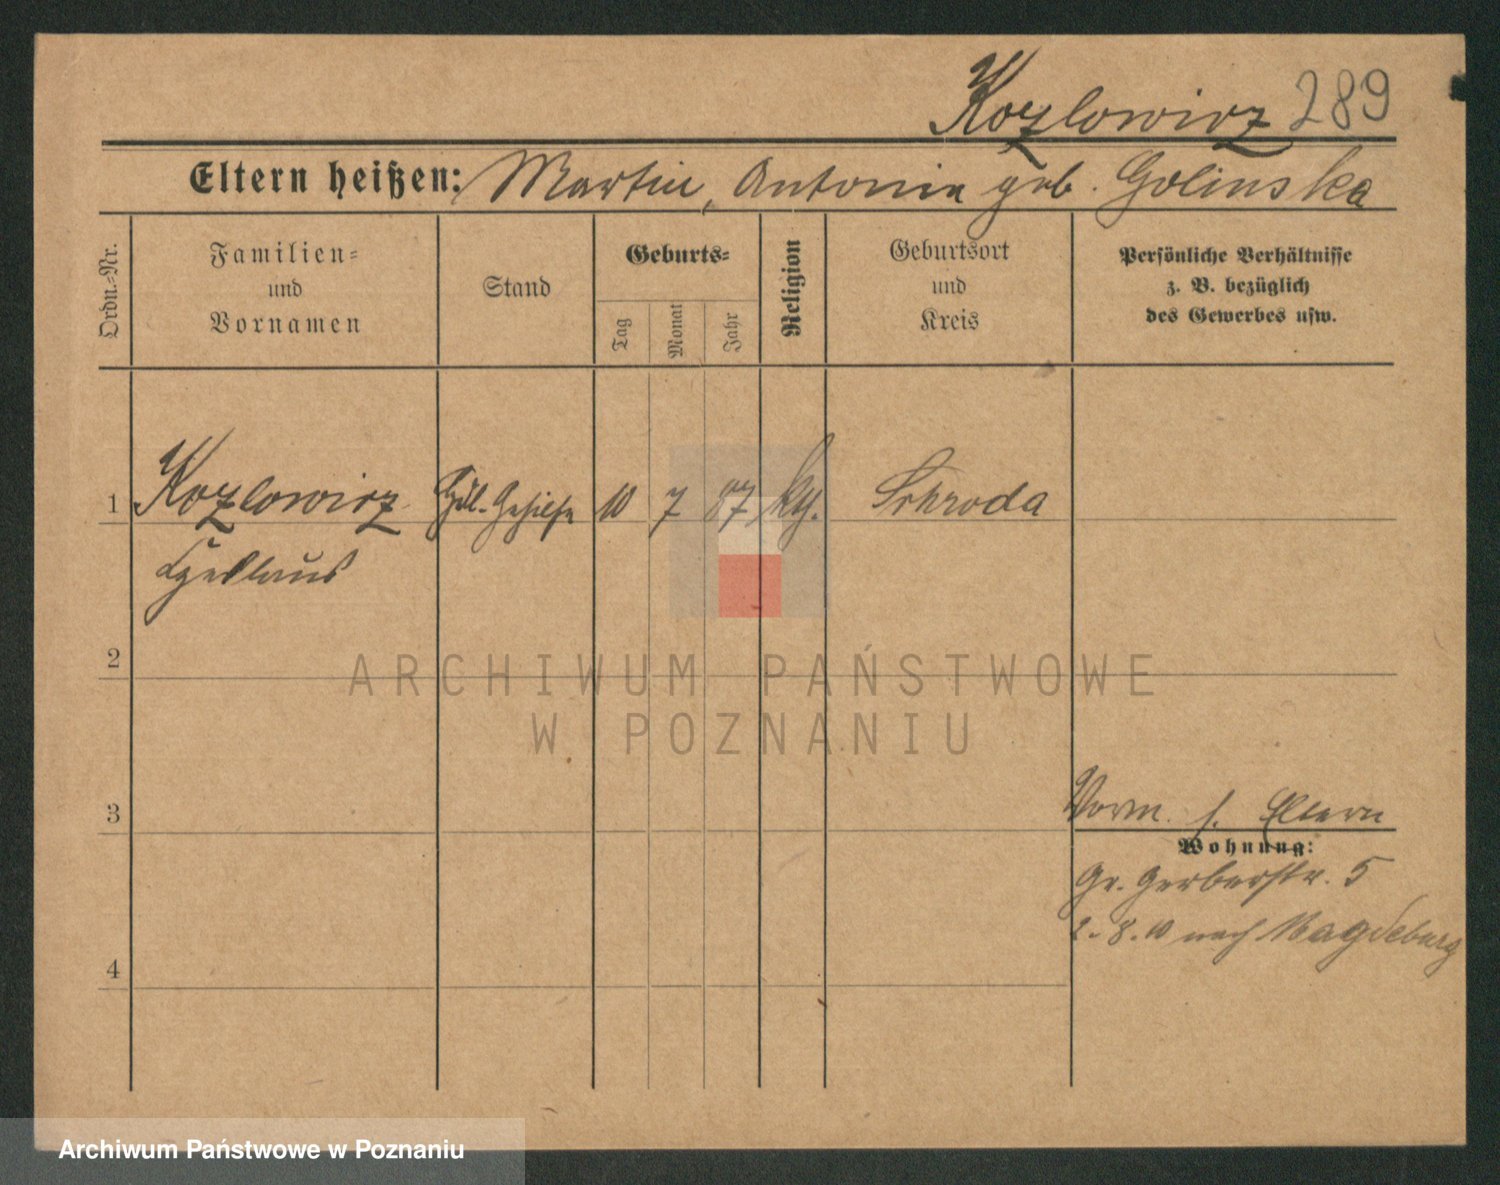 Kozlowicz 289
Eltern heißen: Martin, Antonie geb. Golinska
Ordn.-Nr.
Familien-
und
Vornamen
Stand
Geburts-
Tag
Monat
Jahr
Religion
Geburtsort
und
Kreis
Persönliche Verhältnisse
z. B. bezüglich
des Gewerbes usw.
1 Kozlowicz Gehilfe 10 7 87 kth. Schroda
2
3
4
Vorm. s. Eltern
Wohnung:
Gr. Gerberstr. 5
2.8.10 nach Magdeburg
ARCHIWUM PAŃSTWOWE
W POZNANIU
Archiwum Państwowe w Poznaniu